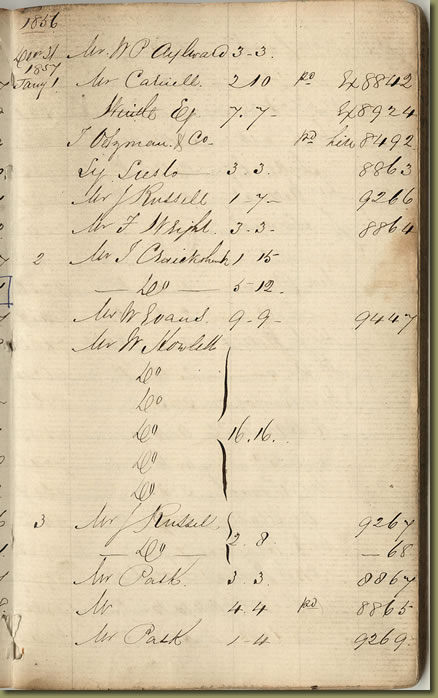 1856
Decr 31 Mr W P Aylward 3-3.
1857
Jany 1 Mr Catwell. 2 10 pd Ex 8842
Esq. 7.7- Ex 8924
& Co pd 8492
3 3. 8863
Mr J Russell 1-7- 9266
Mr F Wright. 3-3- 8864
2 Mr J Cruickshank 1 15
— Do — 5-12-
Mr W Evans. 9-9- 9447
Mr W Howlett
Do
Do
Do 16.16.
Do
Do
3 Mr J Russell. 9267
— Do — 2.8 — 68
Mr Park. 3.3. 8867
Mr 4.4 pd 8865
Mr Park 1-4 9269